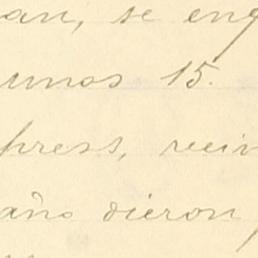 an, se eng
unos 15.
press, rein
año dieron